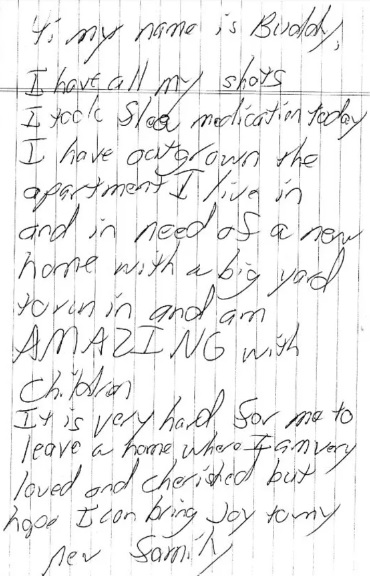 Hi my name is Buddy,
I have all my shots
I took Slea medication today
I have outgrown the
apartment I live in
and in need of a new
home with a big yard
to run in and am
AMAZING with
Children
It is very hard for me to
leave a home where I am very
loved and cherished but
hope I can bring Joy to my
new family